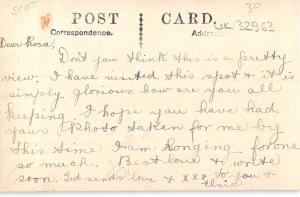 SCOT
30
POST CARD.
Correspondence.
Address
UK 32963
Dear Rosa,
Don't you think this is a pretty
view. I have visited this spot & it is
simply glorious how are you all
keeping. I hope you have had
your photo taken for me by
this time I am longing for one
so much. Best love & write
soon. Ted sends love & xxx to you &
Elsie